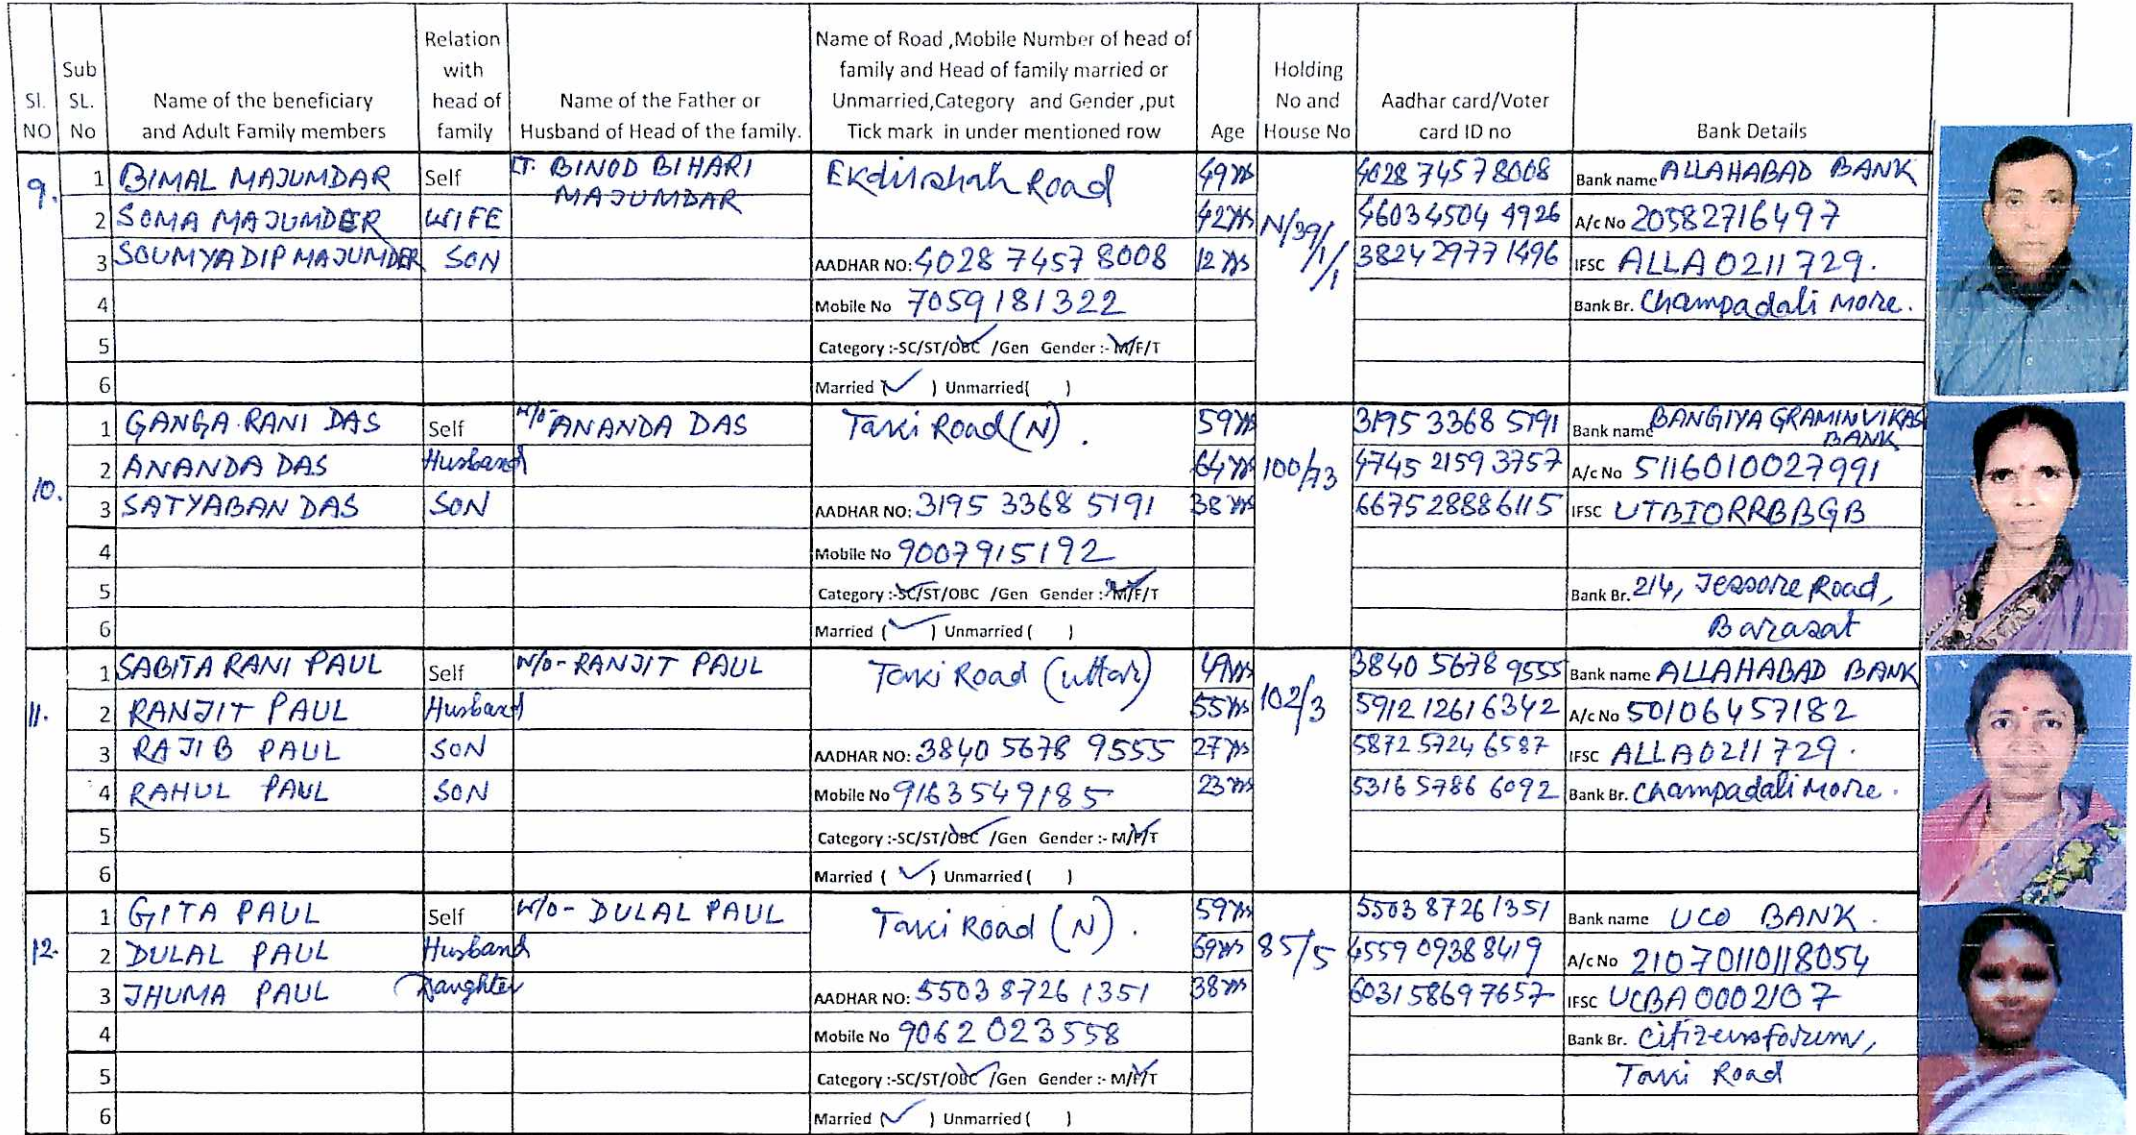 Sl. NO
Sub SL. No
Name of the beneficiary and Adult Family members
Relation with head of family
Name of the Father or Husband of Head of the family.
Name of Road ,Mobile Number of head of family and Head of family married or Unmarried,Category and Gender ,put Tick mark in under mentioned row
Age
Holding No and House No
Aadhar card/Voter card ID no
Bank Details
9.
1 BIMAL MAJUMDAR Self LT. BINOD BIHARI MAJUMDAR Ekdilshah Road 49 yrs N/39/1/1 4028 7457 8008 Bank name ALLAHABAD BANK
2 SOMA MAJUMDER WIFE 42 yrs 4603 4504 4926 A/c No 20582716497
3 SOUMYADIP MAJUMDER SON AADHAR NO: 4028 7457 8008 12 yrs 3824 2977 1496 IFSC ALLA0211729.
4 Mobile No 7059181322 Bank Br. Champadali More.
5 Category :-SC/ST/OBC /Gen Gender :- M/F/T
6 Married ( ) Unmarried( )
10.
1 GANGA RANI DAS Self W/o- ANANDA DAS Taki Road (N). 59 yrs 100/73 3195 3368 5191 Bank name BANGIYA GRAMIN VIKAS BANK
2 ANANDA DAS Husband 64 yrs 4745 2159 3757 A/c No 5116010027991
3 SATYABAN DAS SON AADHAR NO: 3195 3368 5191 38 yrs 6675 2888 6115 IFSC UTBI0RRBBGB
4 Mobile No 9007915192
5 Category :-SC/ST/OBC /Gen Gender :- M/F/T Bank Br. 214, Jessore Road,
6 Married ( ) Unmarried ( ) Barasat
11.
1 SABITA RANI PAUL Self W/o- RANJIT PAUL Taki Road (uttar) 49 yrs 102/3 3840 5678 9555 Bank name ALLAHABAD BANK
2 RANJIT PAUL Husband 55 yrs 5912 1261 6342 A/c No 50106457182
3 RAJIB PAUL SON AADHAR NO: 3840 5678 9555 27 yrs 5872 5724 6587 IFSC ALLA0211729.
4 RAHUL PAUL SON Mobile No 9163549185 23 yrs 5316 5786 6092 Bank Br. Champadali More.
5 Category :-SC/ST/OBC /Gen Gender :- M/F/T
6 Married ( ) Unmarried ( )
12.
1 GITA PAUL Self W/o- DULAL PAUL Taki Road (N). 59 yrs 85/5 5503 8726 1351 Bank name UCO BANK.
2 DULAL PAUL Husband 69 yrs 4559 0938 8419 A/c No 21070110118054
3 JHUMA PAUL Daughter AADHAR NO: 5503 8726 1351 38 yrs 6031 5869 7657 IFSC UCBA0002107
4 Mobile No 9062023558 Bank Br. Citizensforum,
5 Category :-SC/ST/OBC /Gen Gender :- M/F/T Taki Road
6 Married ( ) Unmarried ( )